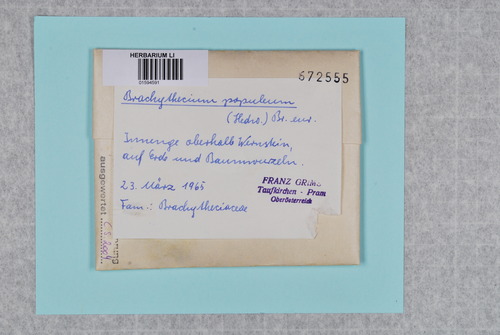 HERBARIUM LI
01594591
672555
Brachythecium populeum
(Hedw.) Br. eur.
Innenge oberhalb Wernstein,
auf Erde und Baumwurzeln.
23. März 1965
Fam.: Brachytheciaceae
FRANZ GRIMS
Taufkirchen - Pram
Oberösterreich
ausgewertet